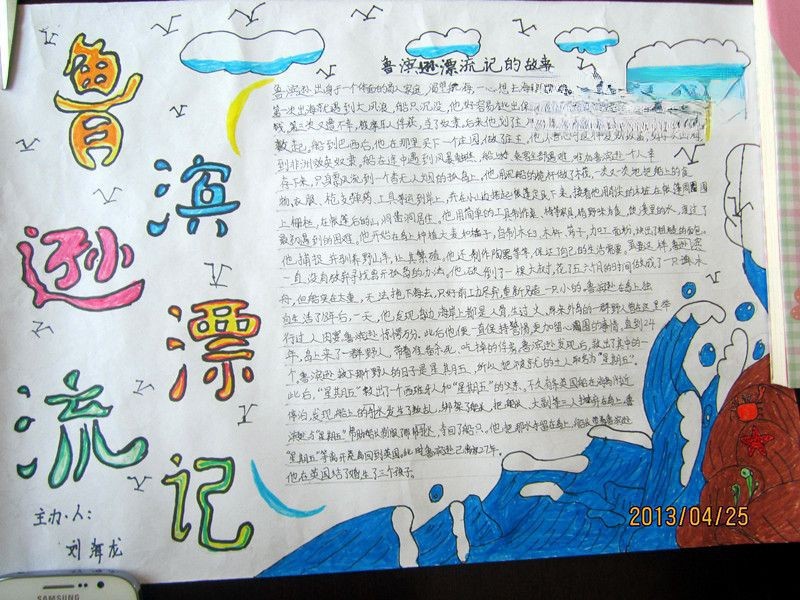 鲁滨逊漂流记
鲁滨逊漂流记的故事
鲁滨逊出身于一个体面的商人家庭,渴望航海,一心想去海
第一次出海就遇到大风浪,船只沉没,他好容易逃出保
钱。第三次又遭不幸,被摩尔人俘获,当了奴隶。后来他划了主
救起。船到巴西后,他在那里买下一个庄园,做庄主,他
到非洲贩卖奴隶。船在途中遇到风暴触礁,船上
存下来,只身飘流到一个杳无人烟的孤岛上。他用沉船的桅杆做了木筏,一次又一次地把船上的食
物、衣服、枪支弹药、工具等运到岸上,并在小山边搭起帐篷定居下来。接着他用削尖的木桩在帐篷周围围
上栅栏,在帐篷后面山洞居住。他用简单的工具制作桌、椅等家具,猎野味为食,饮溪里的水,渡过了
最初遇到的困难。他开始在岛上种植大麦和稻子,自制木臼、木杵、筛子,加工面粉,烘出了粗糙的面包。
他捕捉并驯养野山羊,让其繁殖。他还制作陶器等等,保证了自己的生活需要。
一直没有放弃寻找离开孤岛的办法。他砍倒了一棵大树,花了五六月的时间做成了一只独木
舟,但船实在太重,无法拖下海去,只好前功尽弃,重新另造一只小的。鲁滨逊在岛上独
自生活了15年后,一天,他发现岛边海岸上都是人骨,生过火,原来外岛的一群野人曾在这里举
行过人肉宴。鲁滨逊惊愕万分。此后他便一直保持警惕,更加留心周围的事物。直到24
年,岛上来了一群野人,带着准备杀死、吃掉的俘虏。鲁滨逊发现后,救出了其中的一
个。鲁滨逊救下那个野人的日子是星期五,所以把被救的土人取名为“星期五”。
此后,“星期五”救出了一个西班牙人和“星期五”的父亲。不久有条英国船在岛附近
停泊,发现船上的水手发生了叛乱,绑架了船长,把船长、大副等三人抛弃在岛上,鲁
滨逊与“星期五”帮助船长制服了那帮水手,夺回了船只。他把那水手留在岛上,
“星期五”等离开荒岛回到英国。此时鲁滨逊已离家27年。
他在英国结了婚生了三个孩子。
主办人:
刘海龙
2013/04/25
SAMSUNG